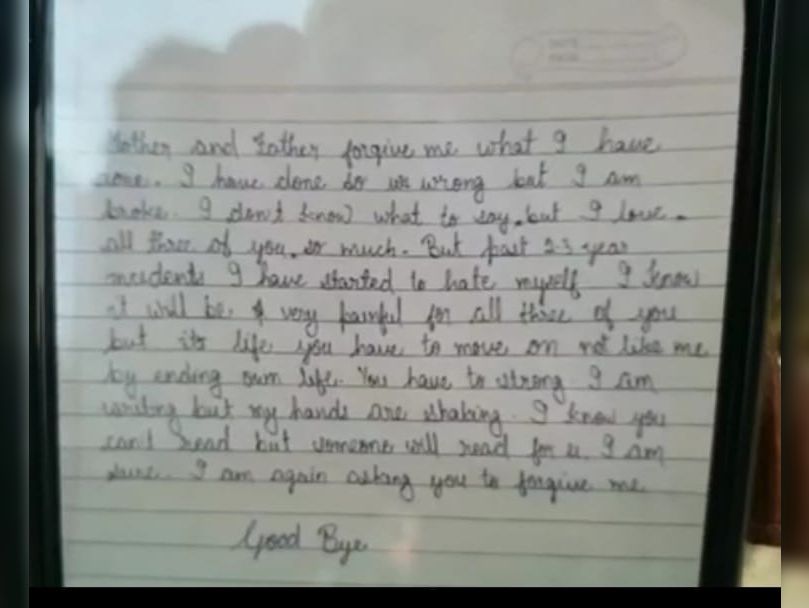 Mother and Father forgive me what I have
done. I have done so wrong but I am
broke. I don't know what to say. but I love.
all three of you. so much. But past 2-3 year
incidents I have started to hate myself I know
it will be. very painful for all three of you
but its life you have to move on not like me
by ending own life. You have to strong I am
writing but my hands are shaking. I know you
cant read but someone will read for u. I am
sure. I am again asking you to forgive me
Good Bye